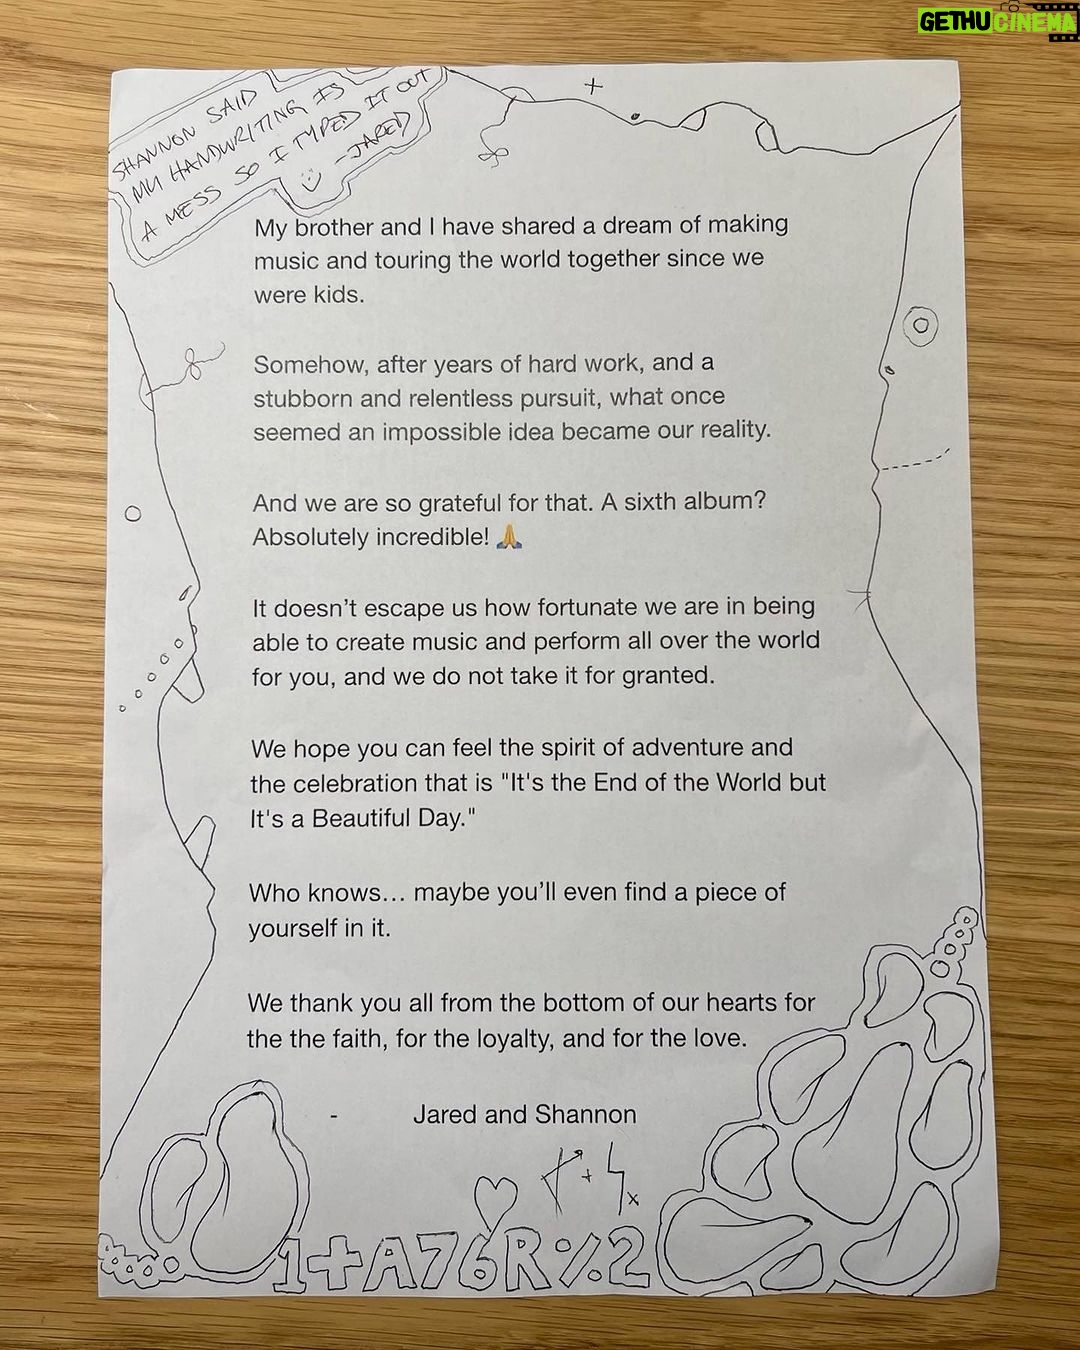 GETHU CINEMA
SHANNON SAID
MY HANDWRITING IS
A MESS SO I TYPED IT OUT
-JARED
My brother and I have shared a dream of making
music and touring the world together since we
were kids.
Somehow, after years of hard work, and a
stubborn and relentless pursuit, what once
seemed an impossible idea became our reality.
And we are so grateful for that. A sixth album?
Absolutely incredible! 🙏
It doesn’t escape us how fortunate we are in being
able to create music and perform all over the world
for you, and we do not take it for granted.
We hope you can feel the spirit of adventure and
the celebration that is "It's the End of the World but
It's a Beautiful Day."
Who knows… maybe you’ll even find a piece of
yourself in it.
We thank you all from the bottom of our hearts for
the the faith, for the loyalty, and for the love.
- Jared and Shannon
1+A76R%2